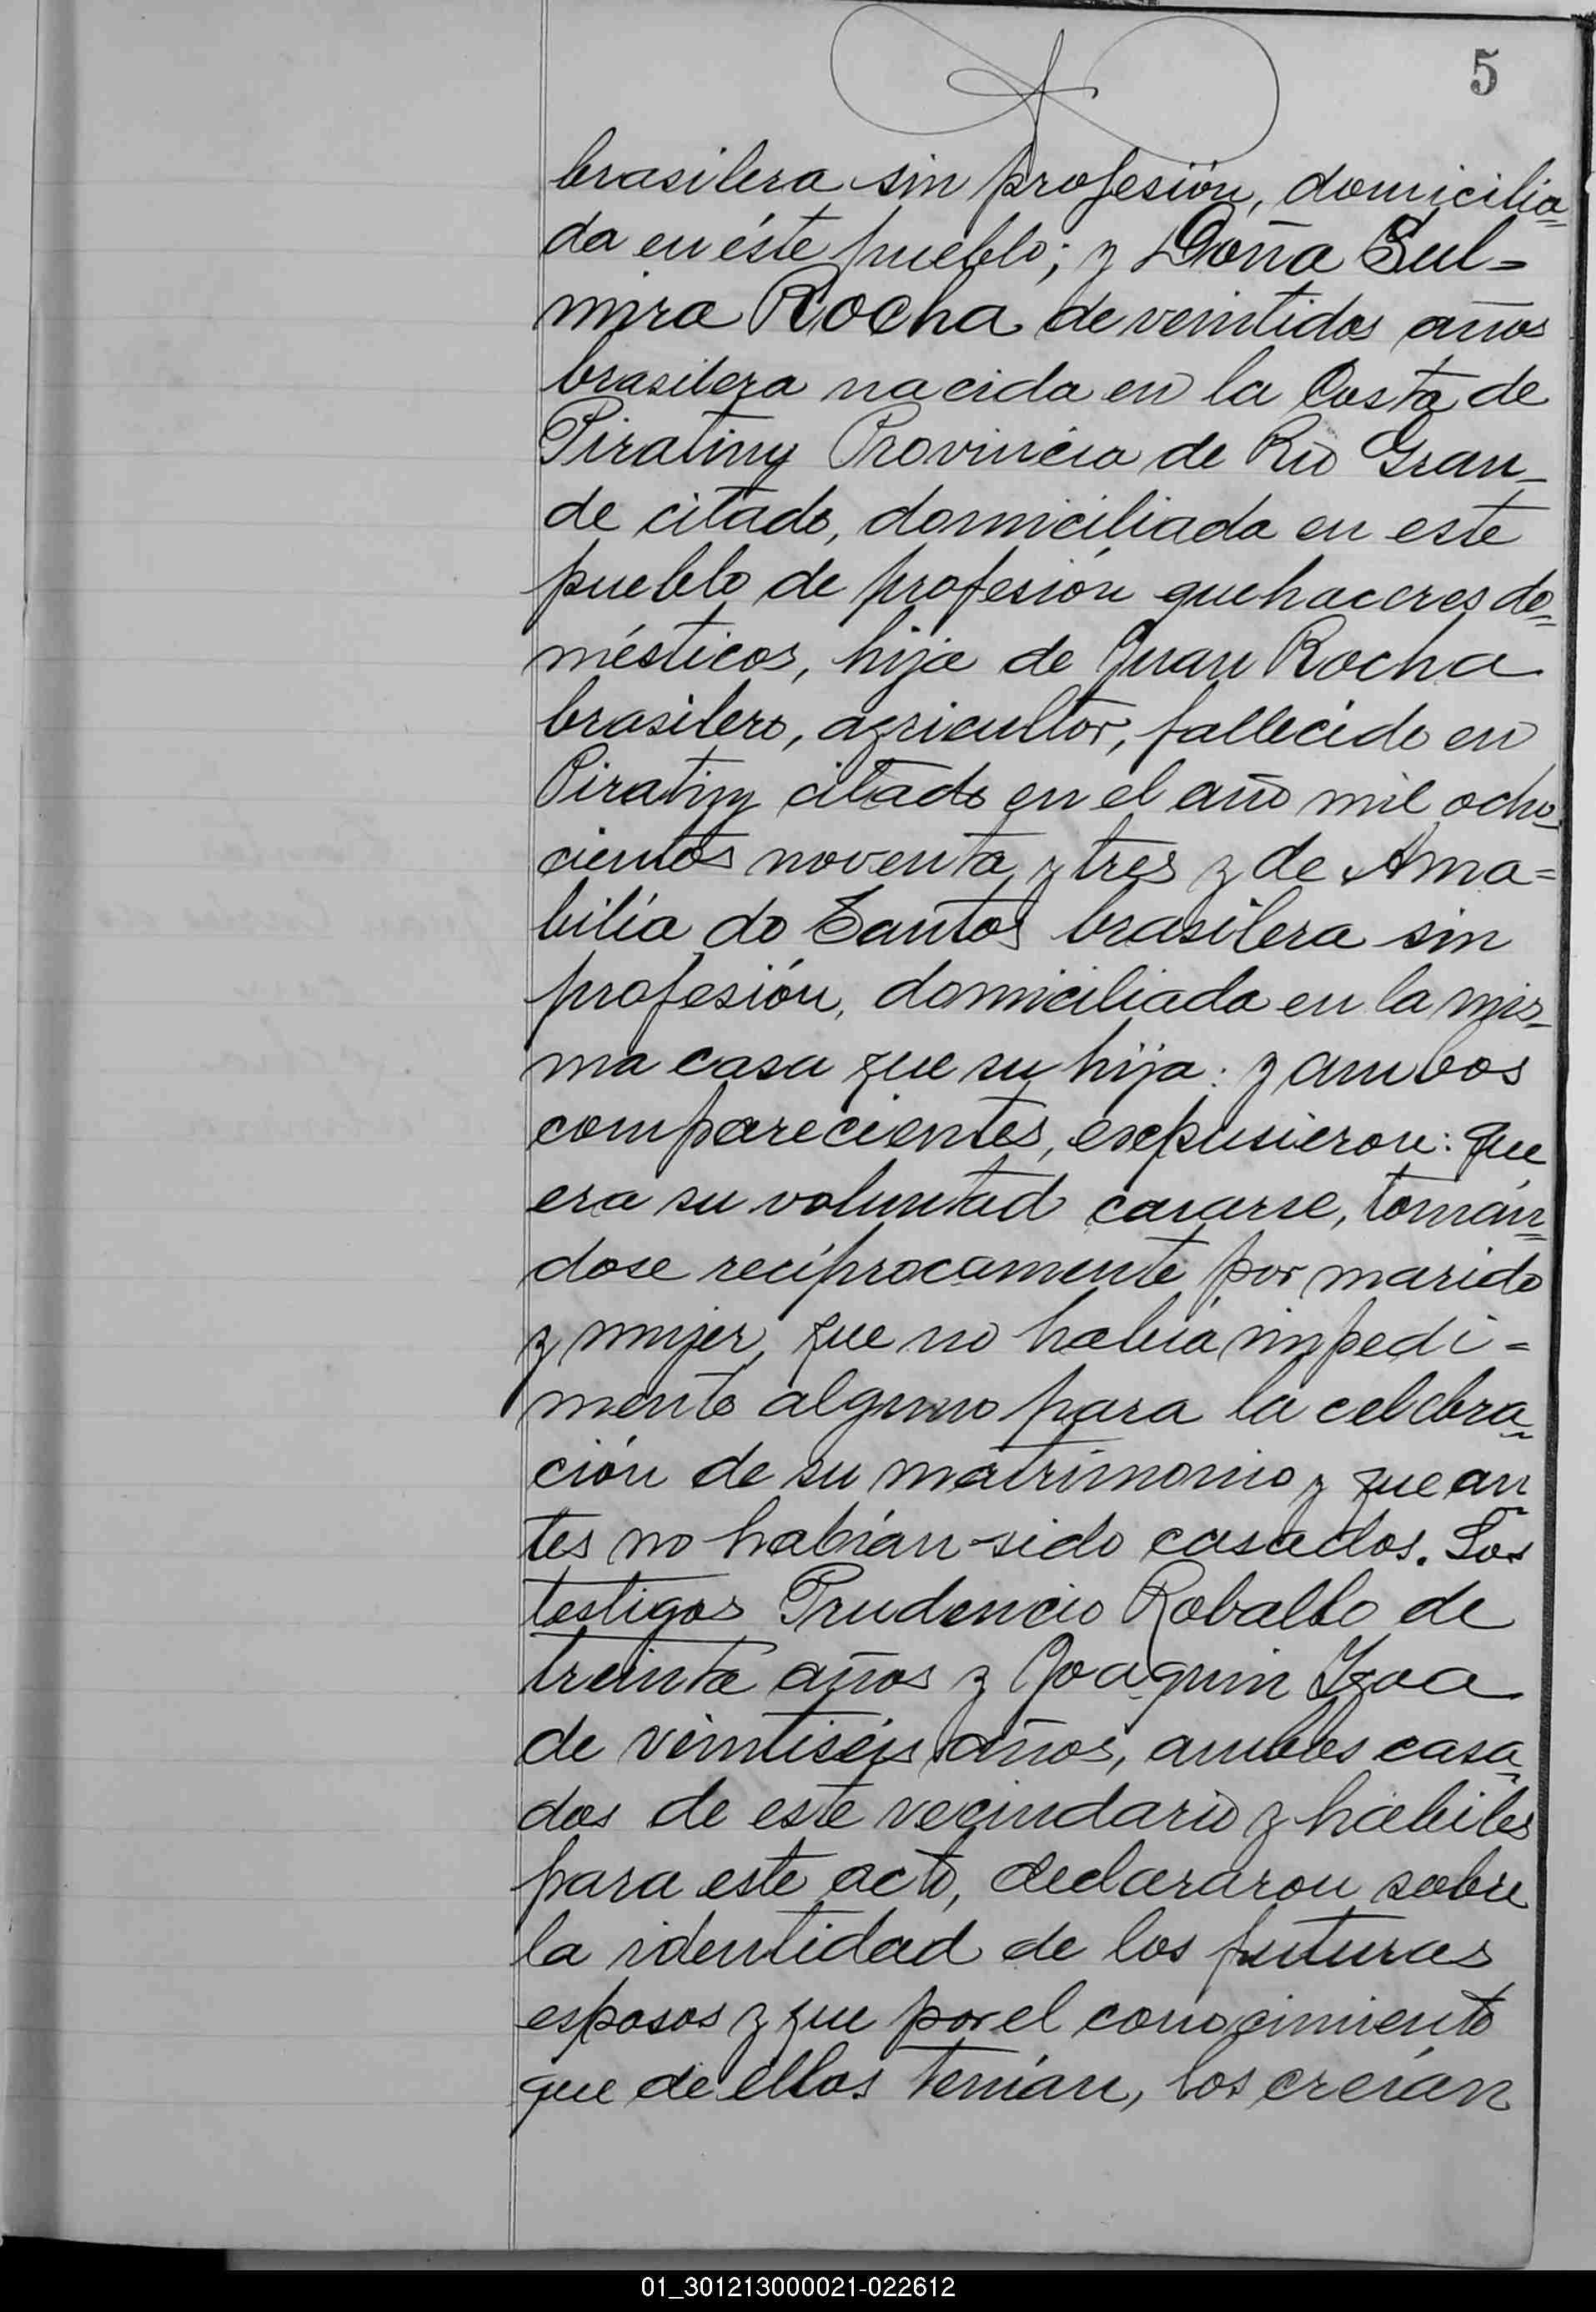 5
brasilera sin profesión, domicilia=
da en éste pueblo; y Doña Sul=
mira Rocha de veintidos años
brasilera nacida en la Costa de
Piratiny Provincia de Rio Gran-
de citado, domiciliada en este
pueblo de profesión quehaceres do=
mésticos, hija de Juan Rocha
brasilero, agricultor, fallecido en
Piratiny citado en el año mil ocho-
cientos noventa y tres y de Ama=
bilia do Santos brasilera sin
profesión, domiciliada en la mis-
ma casa que su hija: y ambos
comparecientes, expusieron: que
era su voluntad casarse, tomán=
dose recíprocamente por marido
y mujer, que no había impedi=
mento alguno para la celebra-
ción de su matrimonio y que an-
tes no habían sido casados. Los
testigos Prudencio Roballo de
treinta años y Joaquin
de veintiséis años, ambos casa-
dos de este vecindario y hábiles
para este acto, declararon sobre
la identidad de los futuros
esposos y que por el conocimiento
que de ellos tenían, los creían
01_301213000021-022612